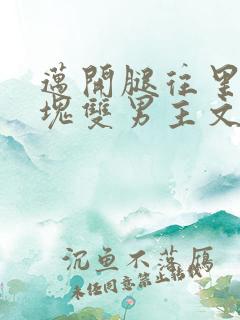 邁開腿往里
塊雙男主文
沉鱼不落雁
未经同意禁止转载